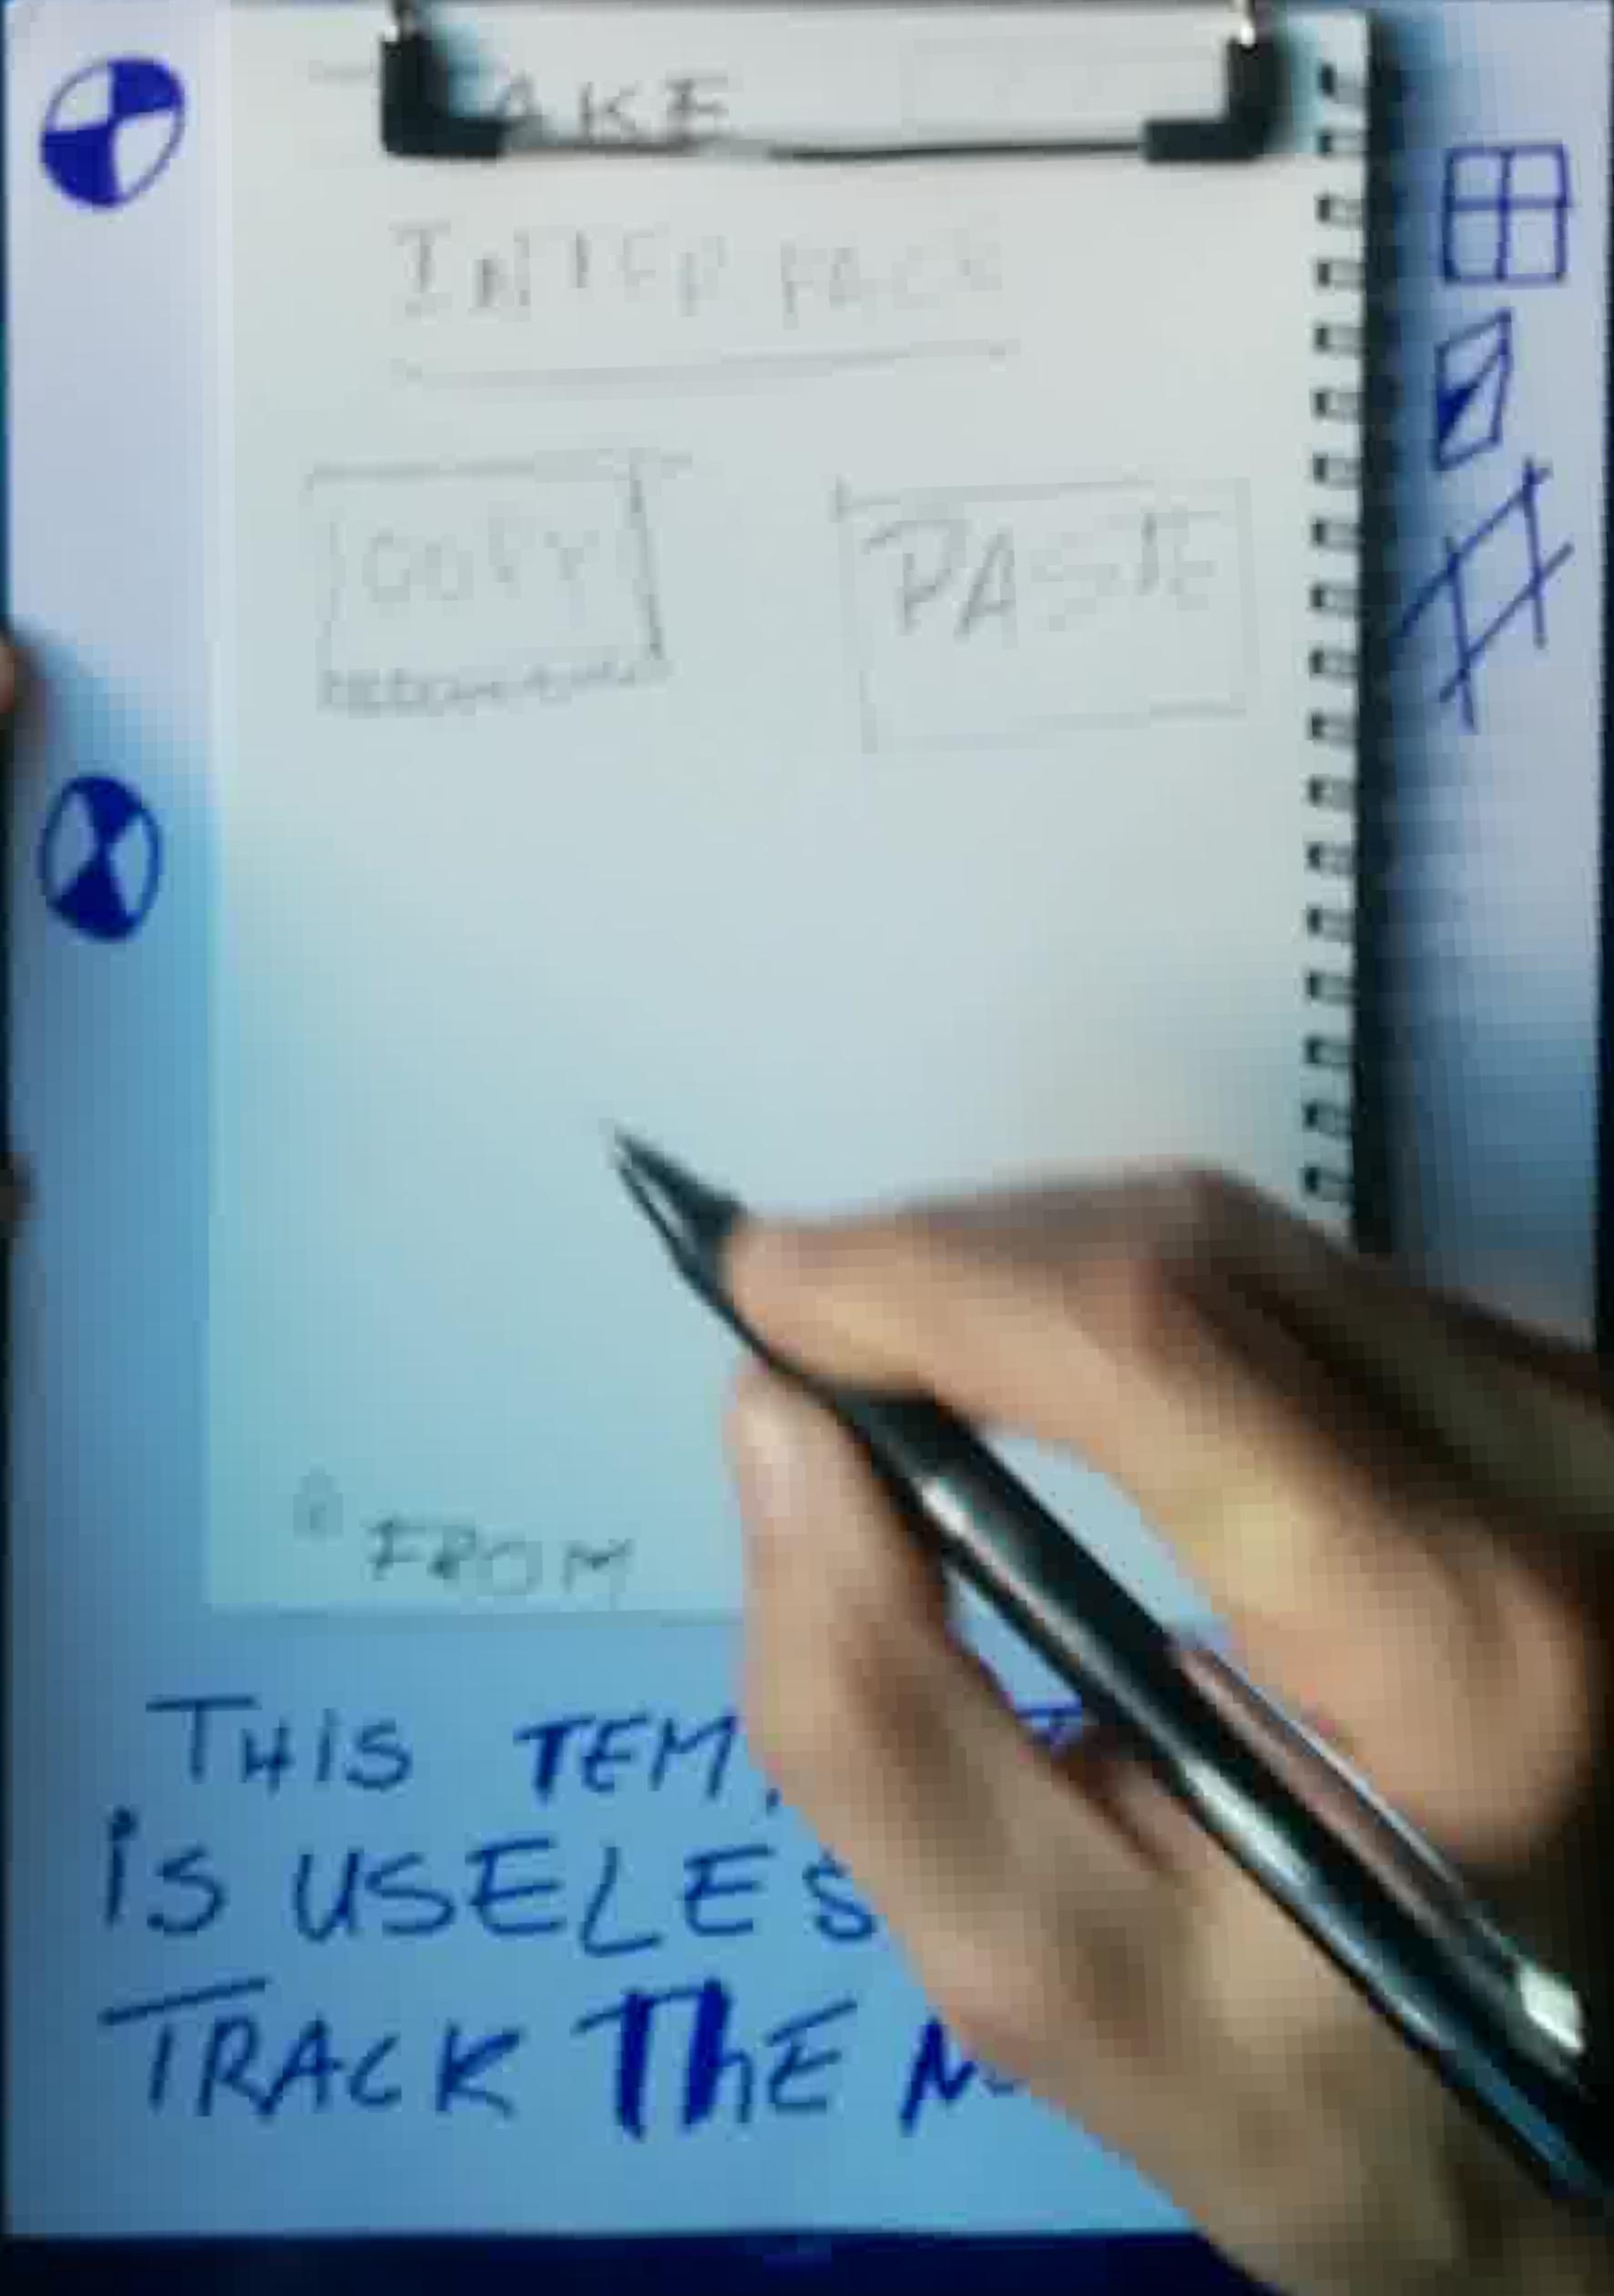 AKE
INTERFACE
COPY PASTE
FROM
THiS TEM
iS USELES
TRACK ThE